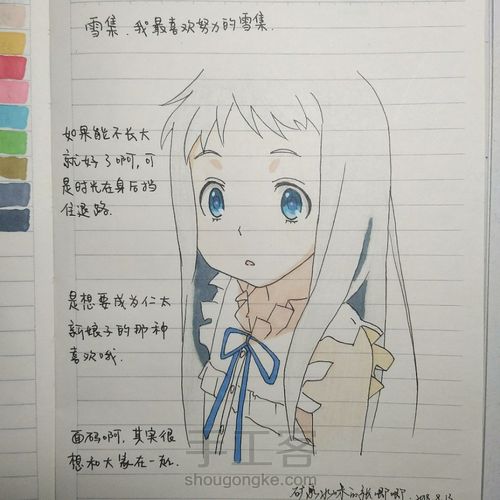 雪集，我最喜欢努力的雪集.
如果能不长大
就好了啊，可
是时光在身后挡
住退路.
是想要成为仁太
新娘子的那种
喜欢哦.
面码啊，其实很
想和大家在一起.
手工客
shougongke.com